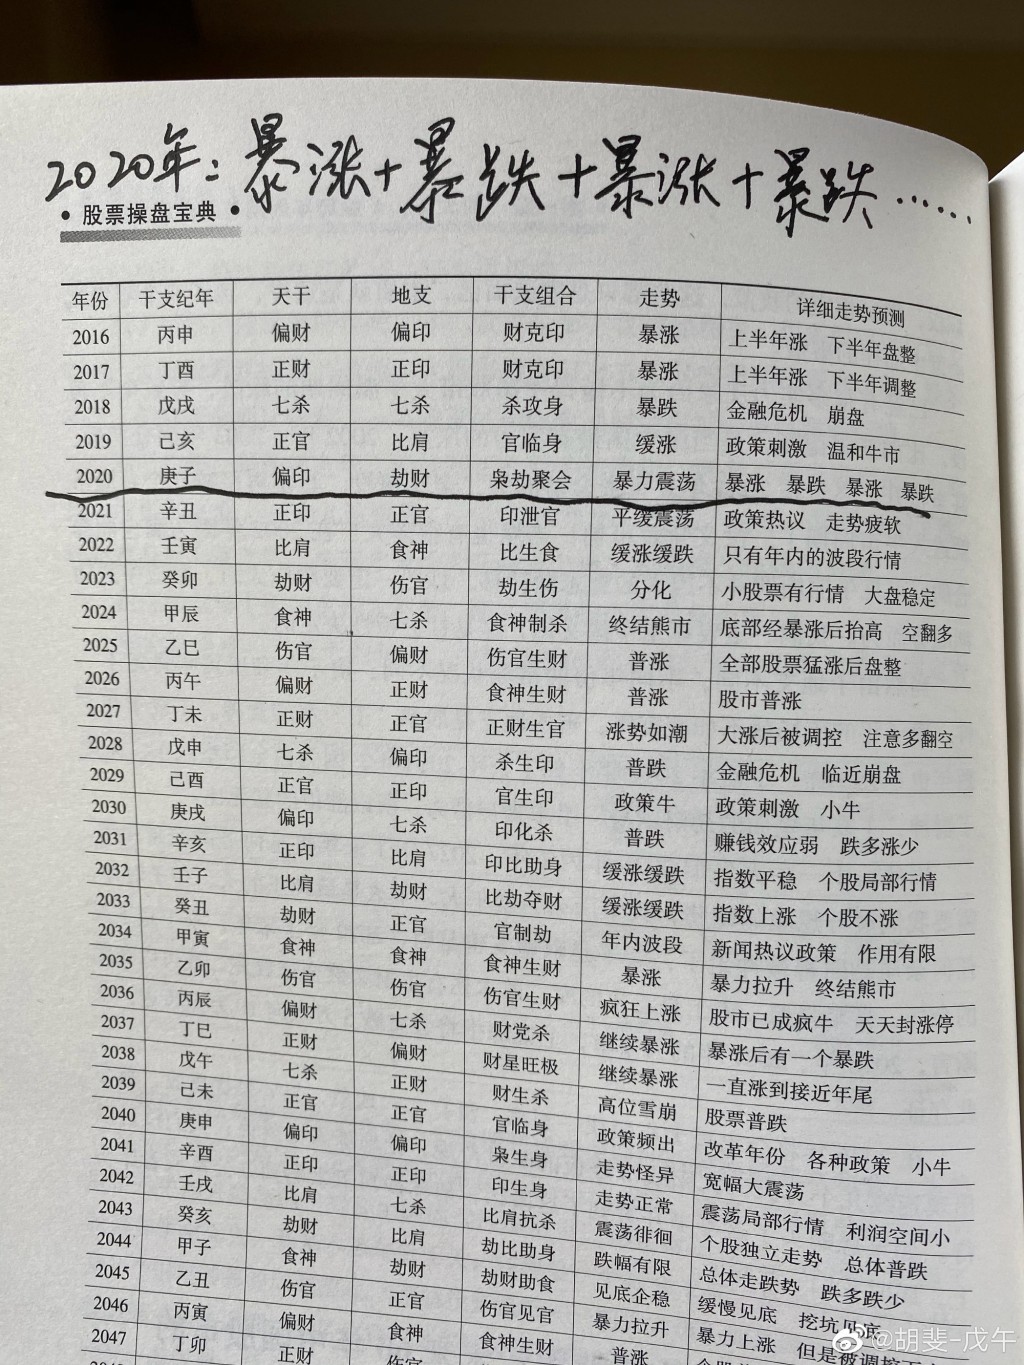 2020年：暴涨+暴跌+暴涨+暴跌……
•股票操盘宝典•
年份 干支纪年 天干 地支 干支组合 走势 详细走势预测
2016 丙申 偏财 偏印 财克印 暴涨 上半年涨 下半年盘整
2017 丁酉 正财 正印 财克印 暴涨 上半年涨 下半年调整
2018 戊戌 七杀 七杀 杀攻身 暴跌 金融危机 崩盘
2019 己亥 正官 比肩 官临身 缓涨 政策刺激 温和牛市
2020 庚子 偏印 劫财 枭劫聚会 暴力震荡 暴涨 暴跌 暴涨 暴跌
2021 辛丑 正印 正官 印泄官 平缓震荡 政策热议 走势疲软
2022 壬寅 比肩 食神 比生食 缓涨缓跌 只有年内的波段行情
2023 癸卯 劫财 伤官 劫生伤 分化 小股票有行情 大盘稳定
2024 甲辰 食神 七杀 食神制杀 终结熊市 底部经暴涨后抬高 空翻多
2025 乙巳 伤官 偏财 伤官生财 普涨 全部股票猛涨后盘整
2026 丙午 偏财 正财 食神生财 普涨 股市普涨
2027 丁未 正财 正官 正财生官 涨势如潮 大涨后被调控 注意多翻空
2028 戊申 七杀 偏印 杀生印 普跌 金融危机 临近崩盘
2029 己酉 正官 正印 官生印 政策牛 政策刺激 小牛
2030 庚戌 偏印 七杀 印化杀 普跌 赚钱效应弱 跌多涨少
2031 辛亥 正印 比肩 印比助身 缓涨缓跌 指数平稳 个股局部行情
2032 壬子 比肩 劫财 比劫夺财 缓涨缓跌 指数上涨 个股不涨
2033 癸丑 劫财 正官 官制劫 年内波段 新闻热议政策 作用有限
2034 甲寅 食神 食神 食神生财 暴涨 暴力拉升 终结熊市
2035 乙卯 伤官 伤官 伤官生财 疯狂上涨 股市已成疯牛 天天封涨停
2036 丙辰 偏财 七杀 财党杀 继续暴涨 暴涨后有一个暴跌
2037 丁巳 正财 偏财 财星旺极 继续暴涨 一直涨到接近年尾
2038 戊午 七杀 正财 财生杀 高位雪崩 股票普跌
2039 己未 正官 正官 官临身 政策频出 改革年份 各种政策 小牛
2040 庚申 偏印 偏印 枭生身 走势怪异 宽幅大震荡
2041 辛酉 正印 正印 印生身 走势正常 震荡局部行情 利润空间小
2042 壬戌 比肩 七杀 比肩抗杀 震荡徘徊 个股独立走势 总体普跌
2043 癸亥 劫财 比肩 劫比助身 跌幅有限 总体走跌势 跌多跌少
2044 甲子 食神 劫财 劫财助食 见底企稳 缓慢见底 挖坑见底
2045 乙丑 伤官 正官 伤官见官 暴力拉升 暴力上涨 但是被调控
2046 丙寅 偏财 食神 食神生财 普涨
2047 丁卯 正财 伤官
@胡斐-戊午